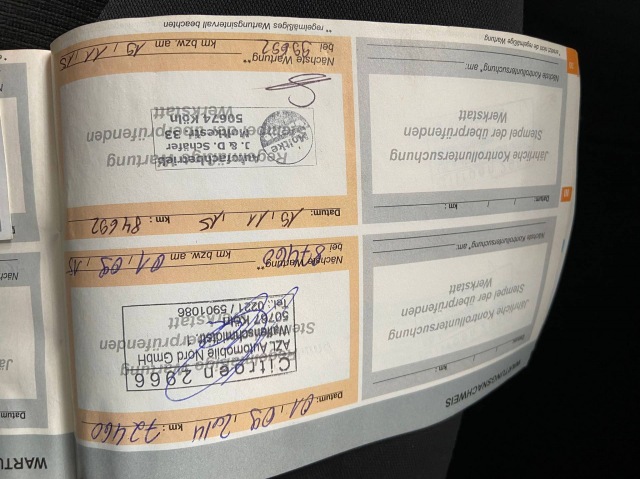 WARTUNGSNACHWEIS
Datum: 01, 09, 2014 km: 72460
Regelmäßige Wartung
Stempel der überprüfenden
Werkstatt
Citroen 2966
AZL Automobile Nord GmbH
50767 Köln
Tel.: 0221 / 5901086
Nächste Wartung**
bei 87460 km bzw. am 01, 09, 15
Datum: / / km:
Jährliche Kontrolluntersuchung
Stempel der überprüfenden
Werkstatt
Nächste Kontrolluntersuchung* am:
Datum: 19, 11, 15 km: 84692
Regelmäßige Wartung
Stempel der überprüfenden
Werkstatt
Wittke
Autofachbetrieb
J. & D. Schäfer
Moltkestr. 33
50674 Köln
Nächste Wartung**
bei 99692 km bzw. am 19, 11, 15
** regelmäßiges Wartungsintervall beachten
Datum: / / km:
Jährliche Kontrolluntersuchung
Stempel der überprüfenden
Werkstatt
Nächste Kontrolluntersuchung* am:
WARTU
Datum:
Jä
Näch